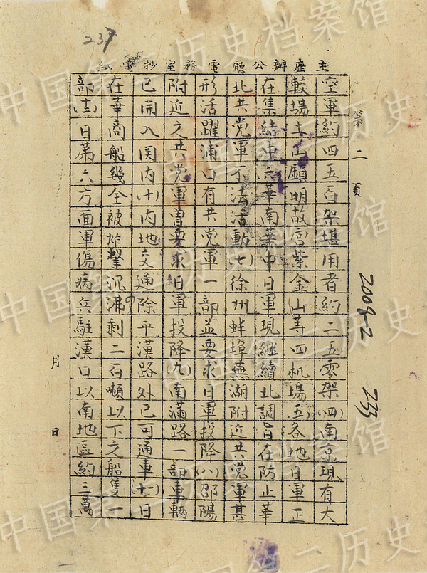 237
主座辦公廳電務室抄
第二頁
空軍約四五百架堪用者約二五零架(四)南京現有大
戟場 土山 明故宮 紫金山等四机場(五)各地日軍正
在集結 華南 華中日軍現繼續北調旨在防止華
北共党軍不法活動(七)徐州蚌埠蕪湖附近共党軍甚
形活躍浦口有共党軍一部並要求日軍投降(八)邵陽
附近之共党軍曾要求日軍投降(九)南潯路一部車輛
已開入関内(十)内地交通除平漢路外已可通車(十一)日
在 商船幾全被炸擊沉沸剩二百頓以下之船隻
部(十二)日第六方面軍傷病兵駐漢口以南地區約三萬
月 日
2009-2
233
中国第二历史档案馆